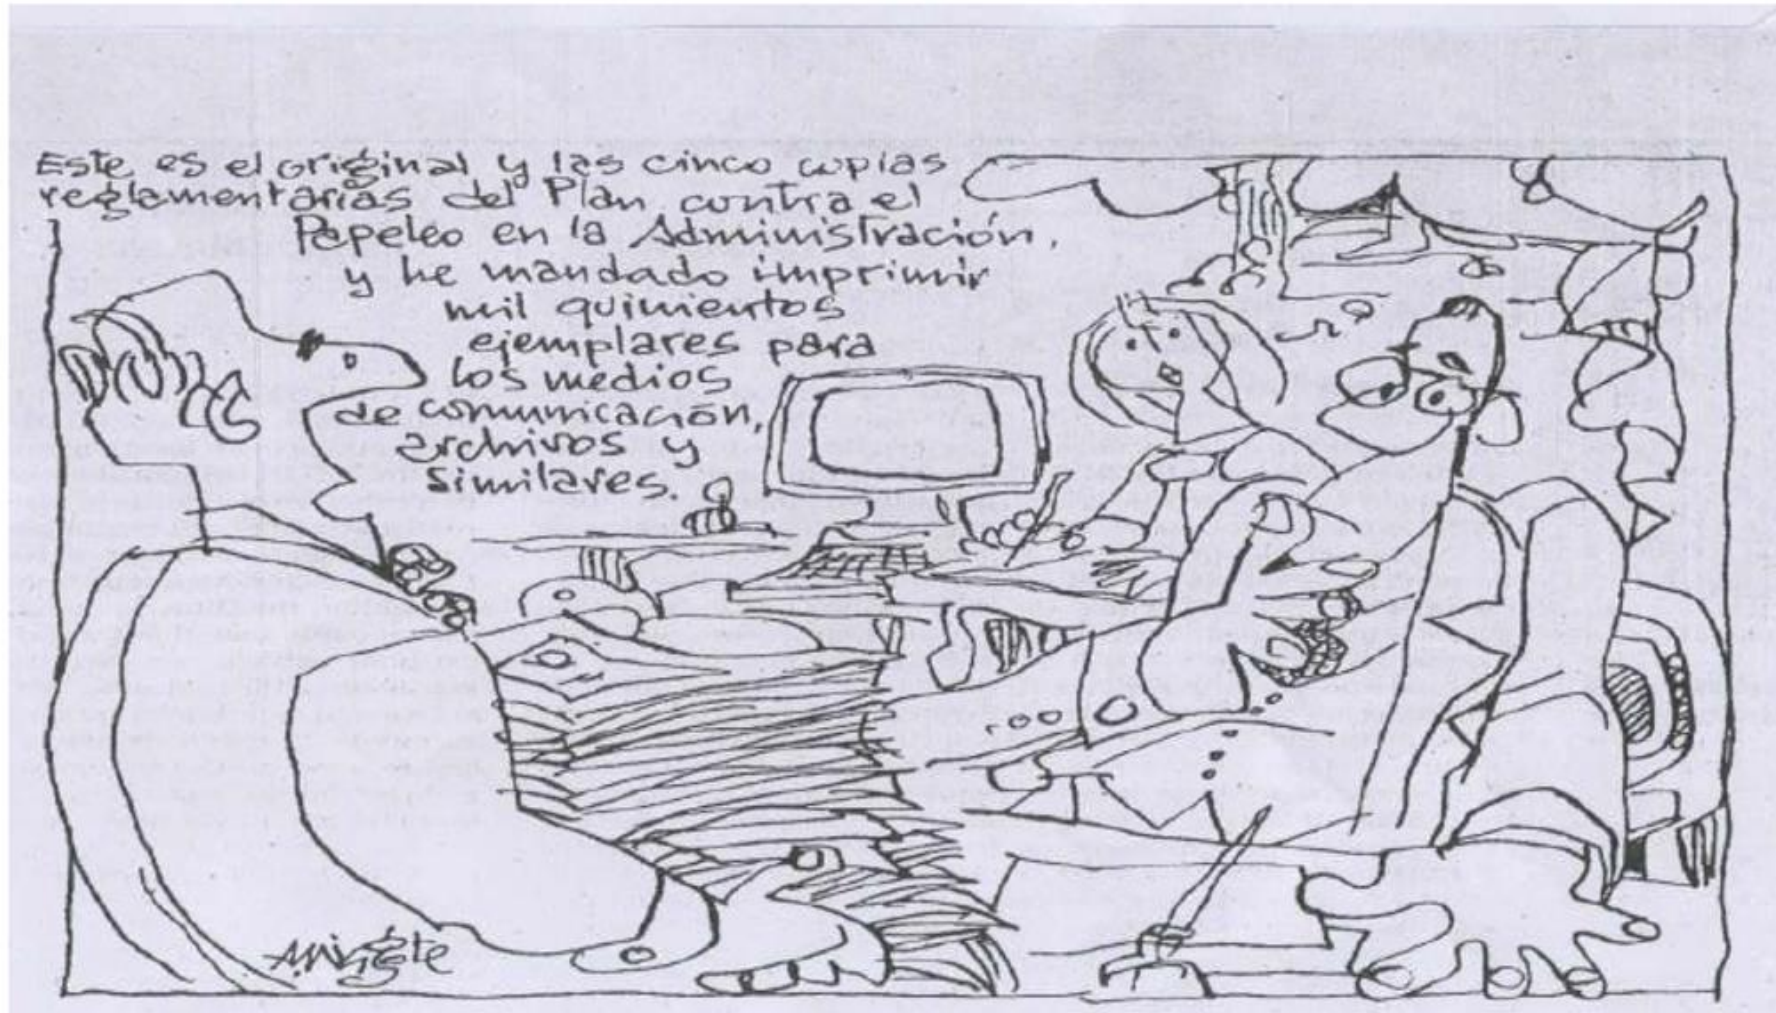 Este es el original y las cinco copias
reglamentarias del Plan contra el
Papeleo en la Administración,
y he mandado imprimir
mil quinientos
ejemplares para
los medios
de comunicación,
archivos y
similares.